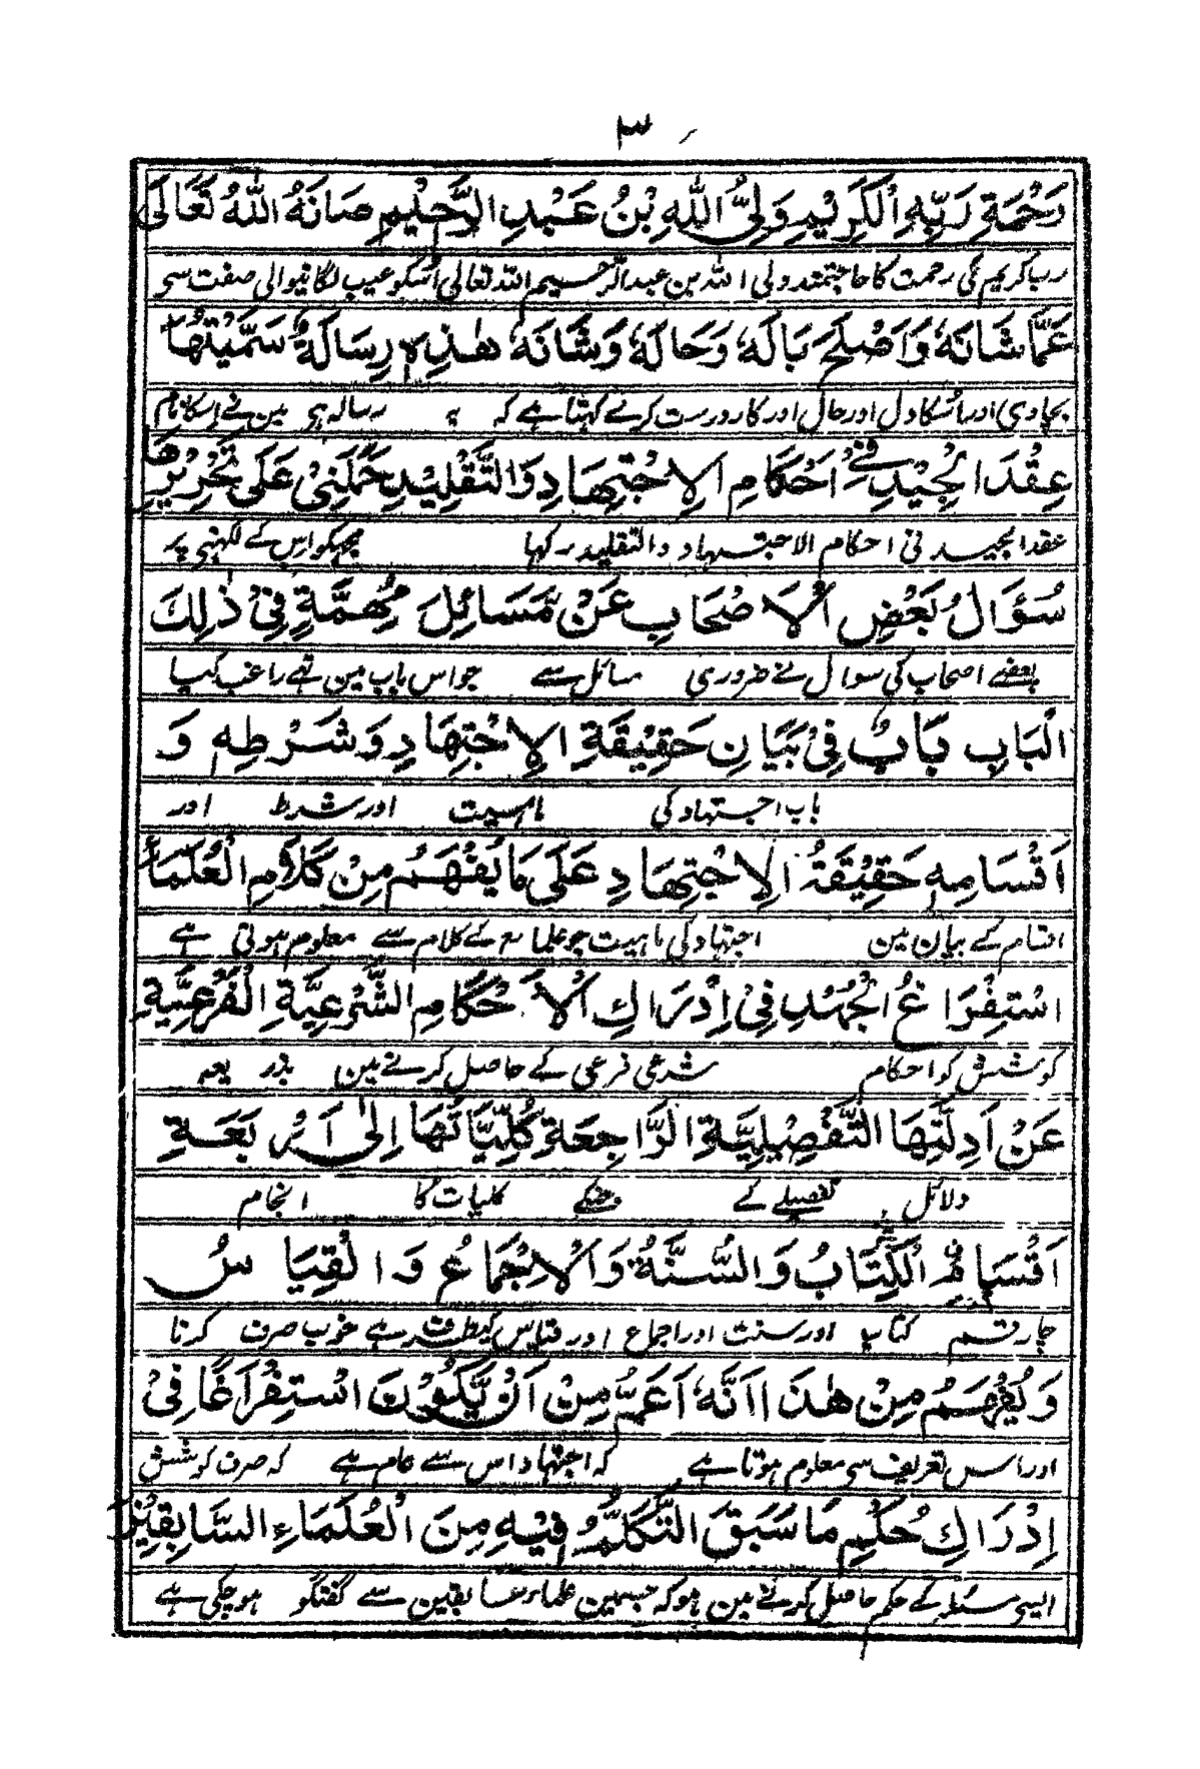 ٣
رَحْمَةِ رَبِّهِ الْكَرِيْمِ وَلِيُّ اللهِ بْنُ عَبْدِ الرَّحِيْمِ صَانَهُ اللهُ تَعَالَى
رب کریم کی رحمت کا حاجتمند ولی اللہ بن عبدالرحسیم اللہ تعالی اُسکو عیب لگانیوالی صفت سی
عَمَّا شَانَهٗ وَاَصْلَحَ بَالَهٗ وَحَالَهٗ وَشَانَهٗ هٰذِهٖ رِسَالَةٌ سَمَّيْتُهَا
بچاوی اور اُسکا دل اور حال اور کار درست کرے کہتا ہے کہ یہ رسالہ ہی مین نے اسکا نام
عِقْدَ الْجِيْدِ فِيْ اَحْكَامِ الِاجْتِهَادِ وَالتَّقْلِيْدِ حَمَلَنِيْ عَلَى تَحْرِيْرِهَا
عقد الجید فی احکام الاجتہاد والتقلید رکہا مجھکو اس کے لکھنی پر
سُؤَالُ بَعْضِ الْاَصْحَابِ عَنْ مَّسَائِلَ مُهِمَّةٍ فِيْ ذٰلِكَ
بعضے اصحاب کی سوال نے ضروری مسائل سے جو اس باب مین تھے راغب کیا
الْبَابِ بَابٌ فِيْ بَيَانِ حَقِيْقَةِ الِاجْتِهَادِ وَشَرْطِهٖ وَ
باب اجتہاد کی ماہیت اور شرط اور
اَقْسَامِهٖ حَقِيْقَةُ الِاجْتِهَادِ عَلَى مَا يُفْهَمُ مِنْ كَلَامِ الْعُلَمَاءِ
اقسام کے بیان مین اجتہاد کی ماہیت جو علماء کے کلام سے معلوم ہوتی ہے
اسْتِفْرَاغُ الْجُهْدِ فِيْ اِدْرَاكِ الْاَحْكَامِ الشَّرْعِيَّةِ الْفَرْعِيَّةِ
کوشش کو احکام شرعی فرعی کے حاصل کرنے مین بذریعہ
عَنْ اَدِلَّتِهَا التَّفْصِيْلِيَّةِ الرَّاجِعَةِ كُلِّيَّاتُهَا اِلٰى اَرْبَعَةِ
دلائل تفصیلے کے جنکے کلیات کا انجام
اَقْسَامٍ الْكِتَابُ وَالسُّنَّةُ وَالْاِجْمَاعُ وَالْقِيَاسُ
چار قسم کتاب اور سنت اور اجماع اور قیاس کیطرف ہے خوب صرف کرنا
وَيُفْهَمُ مِنْ هٰذَا اَنَّهٗ اَعَمُّ مِنْ اَنْ يَّكُوْنَ اسْتِفْرَاغًا فِيْ
اور اس تعریف سی معلوم ہوتا ہے کہ اجتہاد اس سے عام ہے کہ صرف کوشش
اِدْرَاكِ حُكْمِ مَا سَبَقَ التَّكَلُّمُ فِيْهِ مِنَ الْعُلَمَاءِ السَّابِقِيْنَ
ایسی مسئلہ کے حکم حاصل کرنے مین ہو کہ جسمین علماء سابقین سے گفتگو ہوچکی ہے